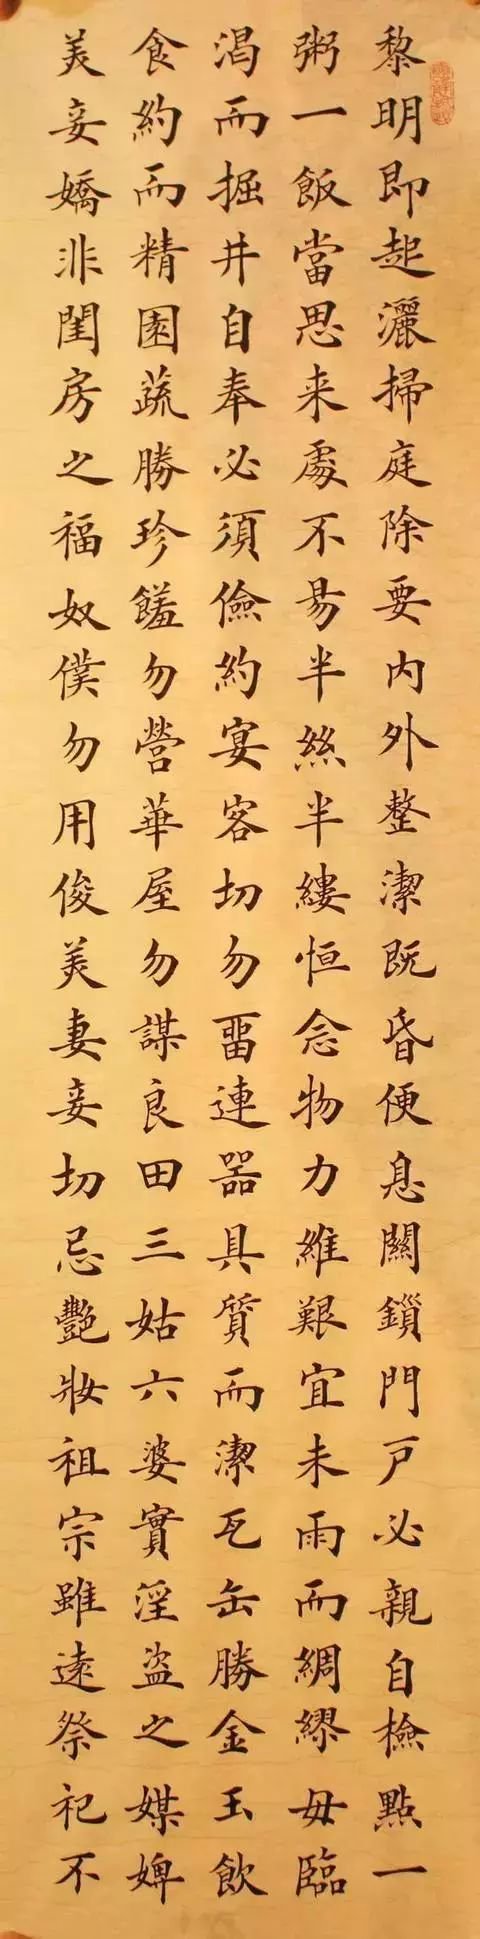 黎明即起灑掃庭除要内外整潔既昏便息關鎖門戸必親自檢點一
粥一飯當思来處不易半絲半縷恒念物力維艱宜未雨而綢繆毋臨
渴而掘井自奉必須儉約宴客切勿畱連器具質而潔瓦缶勝金玉飲
食約而精園蔬勝珍饈勿營華屋勿謀良田三姑六婆實淫盜之媒婢
美妾嬌非閨房之福奴僕勿用俊美妻妾切忌艷妝祖宗雖遠祭祀不